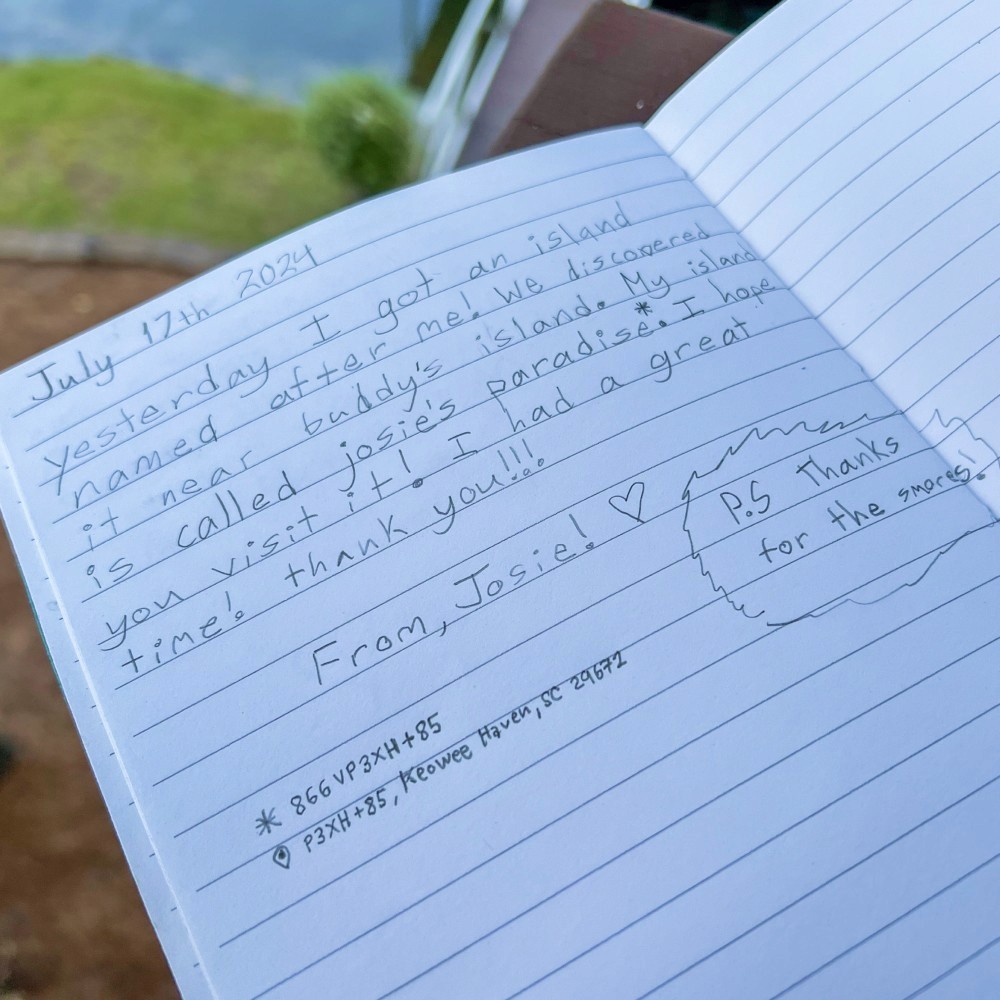 July 17th 2024
yesterday I got an island
named after me! We discovered
it near buddy's island. My island
is called josie's paradise.* I hope
you visit it! I had a great
time! thank you!!!
From, Josie! ♡
P.S Thanks
for the smores!
* 866VP3XH+85
P3XH+85, Keowee Haven, SC 29672